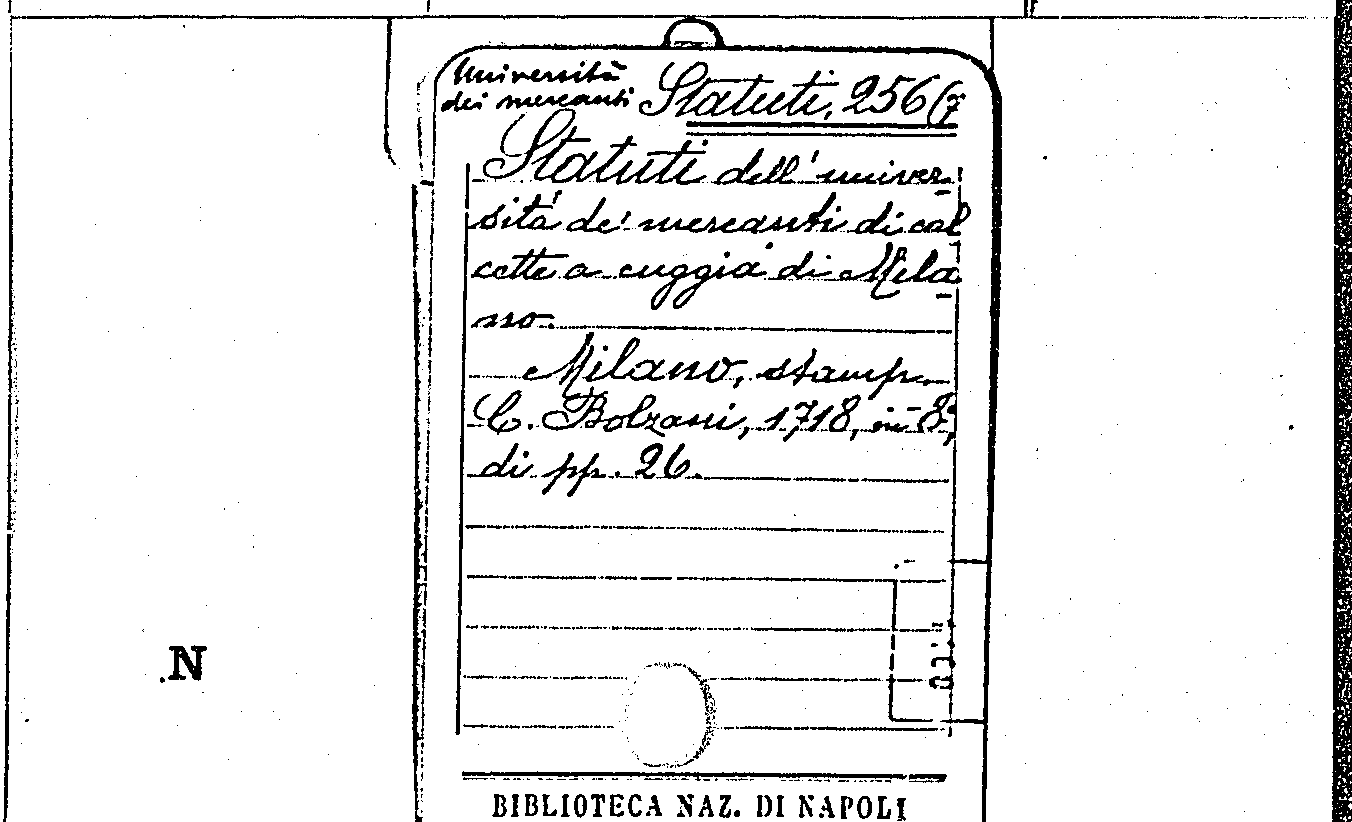 Università
dei mercanti Statuti, 256(7
Statuti dell'univer-
sità de' mercanti di cal
cette a cuggia di Mila-
no.
Milano, stamp.
C. Bolzani, 1718, in-8°,
di pp. 26.
N
BIBLIOTECA NAZ. DI NAPOLI